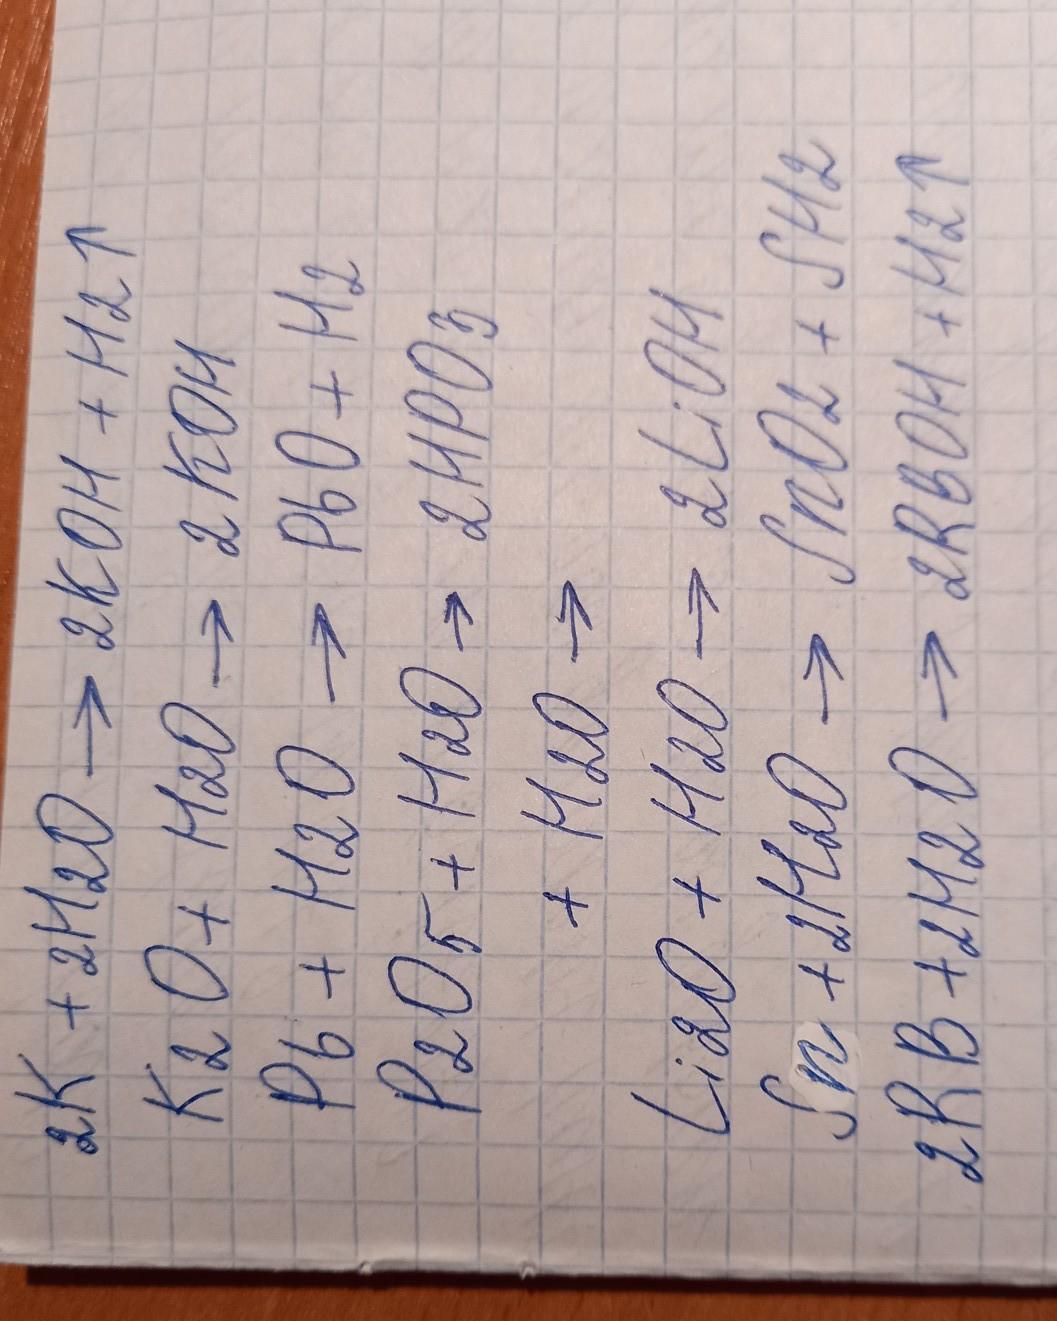 2K + 2H2O → 2KOH + H2↑
K2O + H2O → 2KOH
Pb + H2O → PbO + H2
P2O5 + H2O → 2HPO3
+ H2O →
Li2O + H2O → 2LiOH
Sn + 2H2O → SnO2 + SH2
2RB + 2H2O → 2RBOH + H2↑